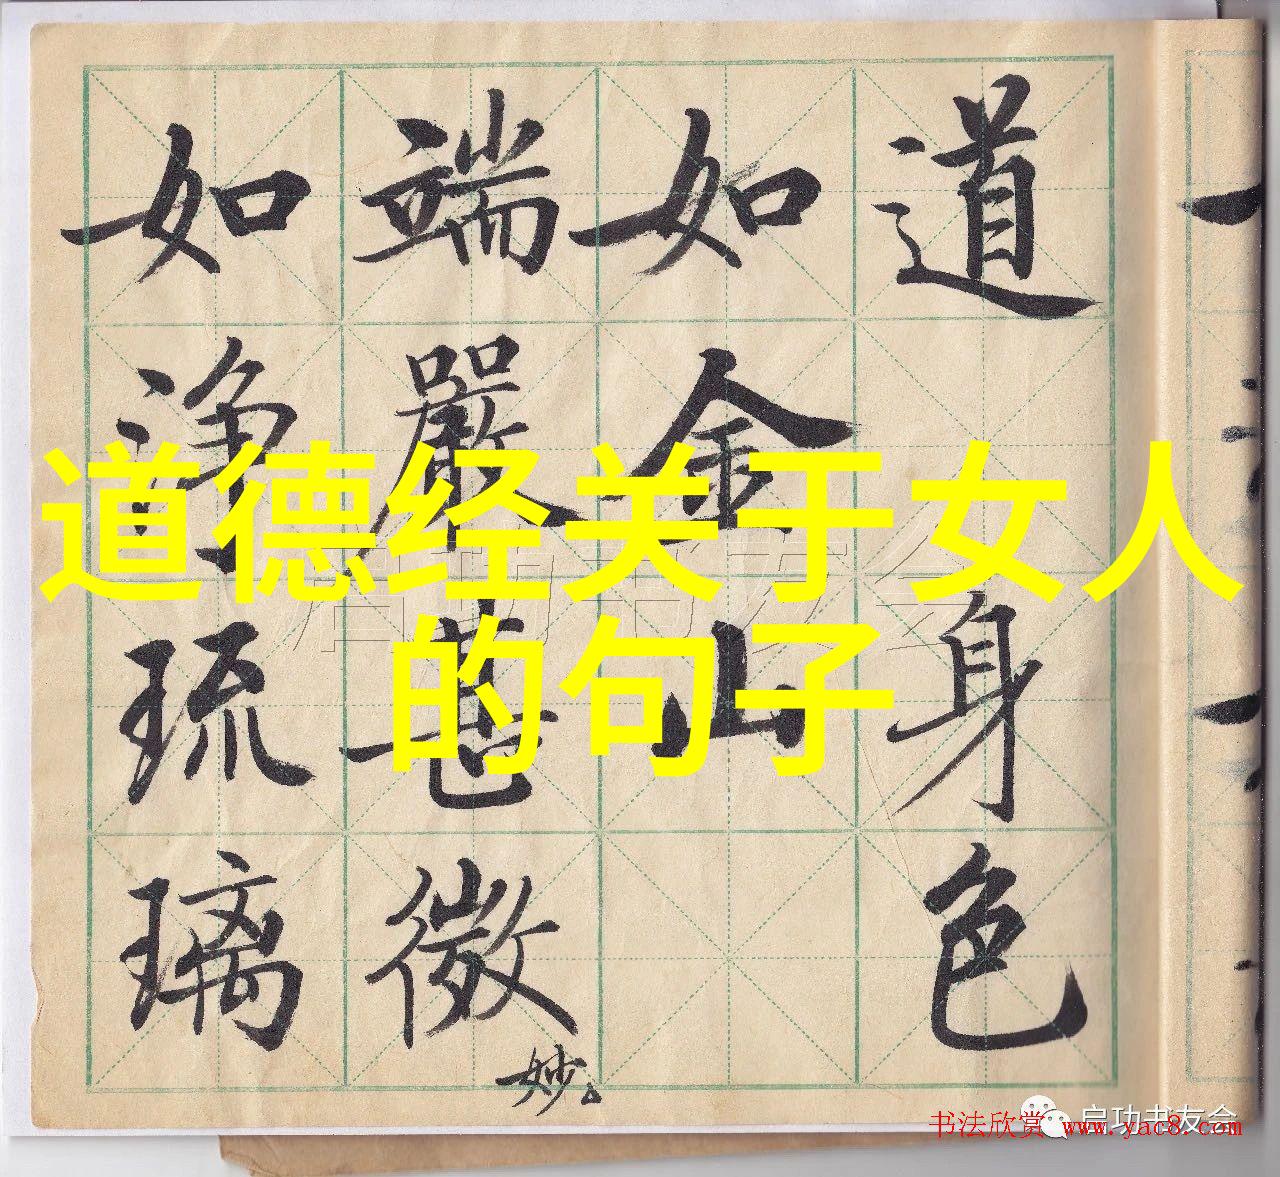 道德经关于女人
的句子
道身色
如金山
端嚴甚微妙
如淨琉璃
启功书友会
启功书友会
书法欣赏 www.yac8.com